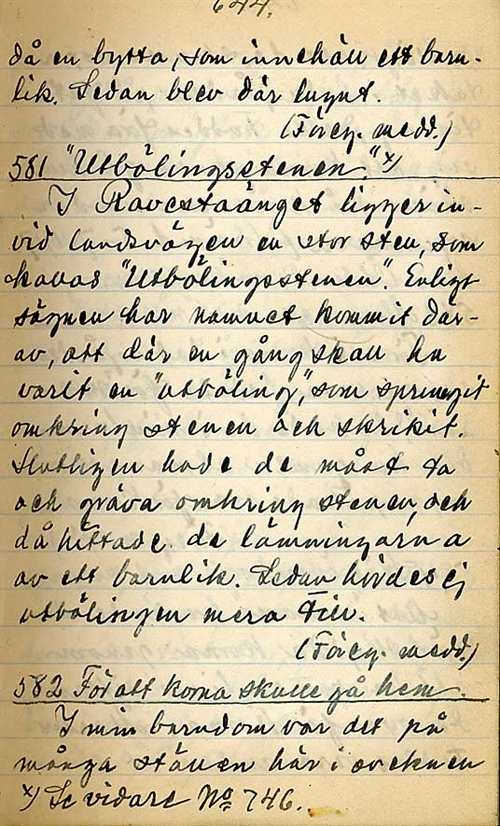 644.
då en bytta, som innehöll ett barn-
lik. Sedan blev där lugnt.
(Föreg. medd.)
581 "Utbölingsstenen." x)
I Ravestaänget ligger in-
vid landsvägen en stor sten, som
kallas "Utbölingsstenen". Enligt
sägnen har namnet kommit där-
av, att där en gång skall ha
varit en "utböling", som sprungit
omkring stenen och skrikit.
Slutligen hade de måst ta
och gräva omkring stenen, och
då hittade de lämningarna
av ett barnlik. Sedan hördes ej
utbölingen mera till.
(Föreg. medd.)
582 För att korna skulle gå hem.
I min barndom var det på
många ställen här i socknen
x) Se vidare No 746.